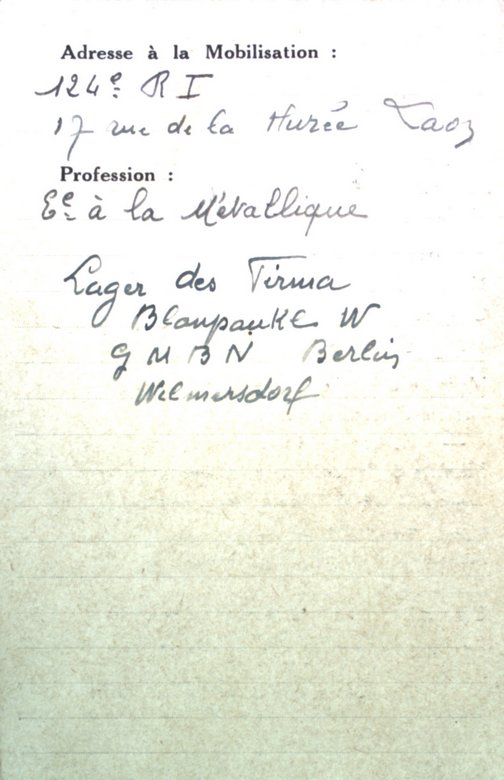 Adresse à la Mobilisation :
124e R I
17 rue de la Hurée Laon
Profession :
Ee à la Métallique
Lager des Firma
Blaupauke W
G M B N Berlin
Wilmersdorf